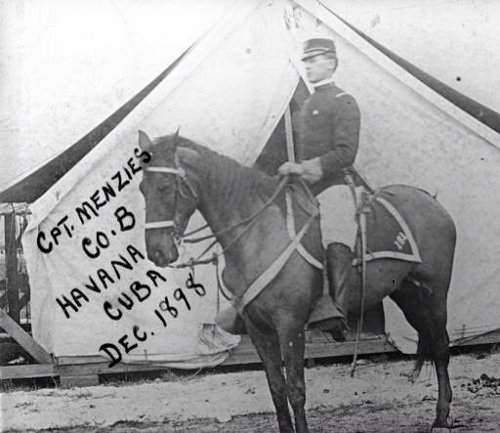 CPT. MENZIES
CO. B
HAVANA
CUBA
DEC. 1898